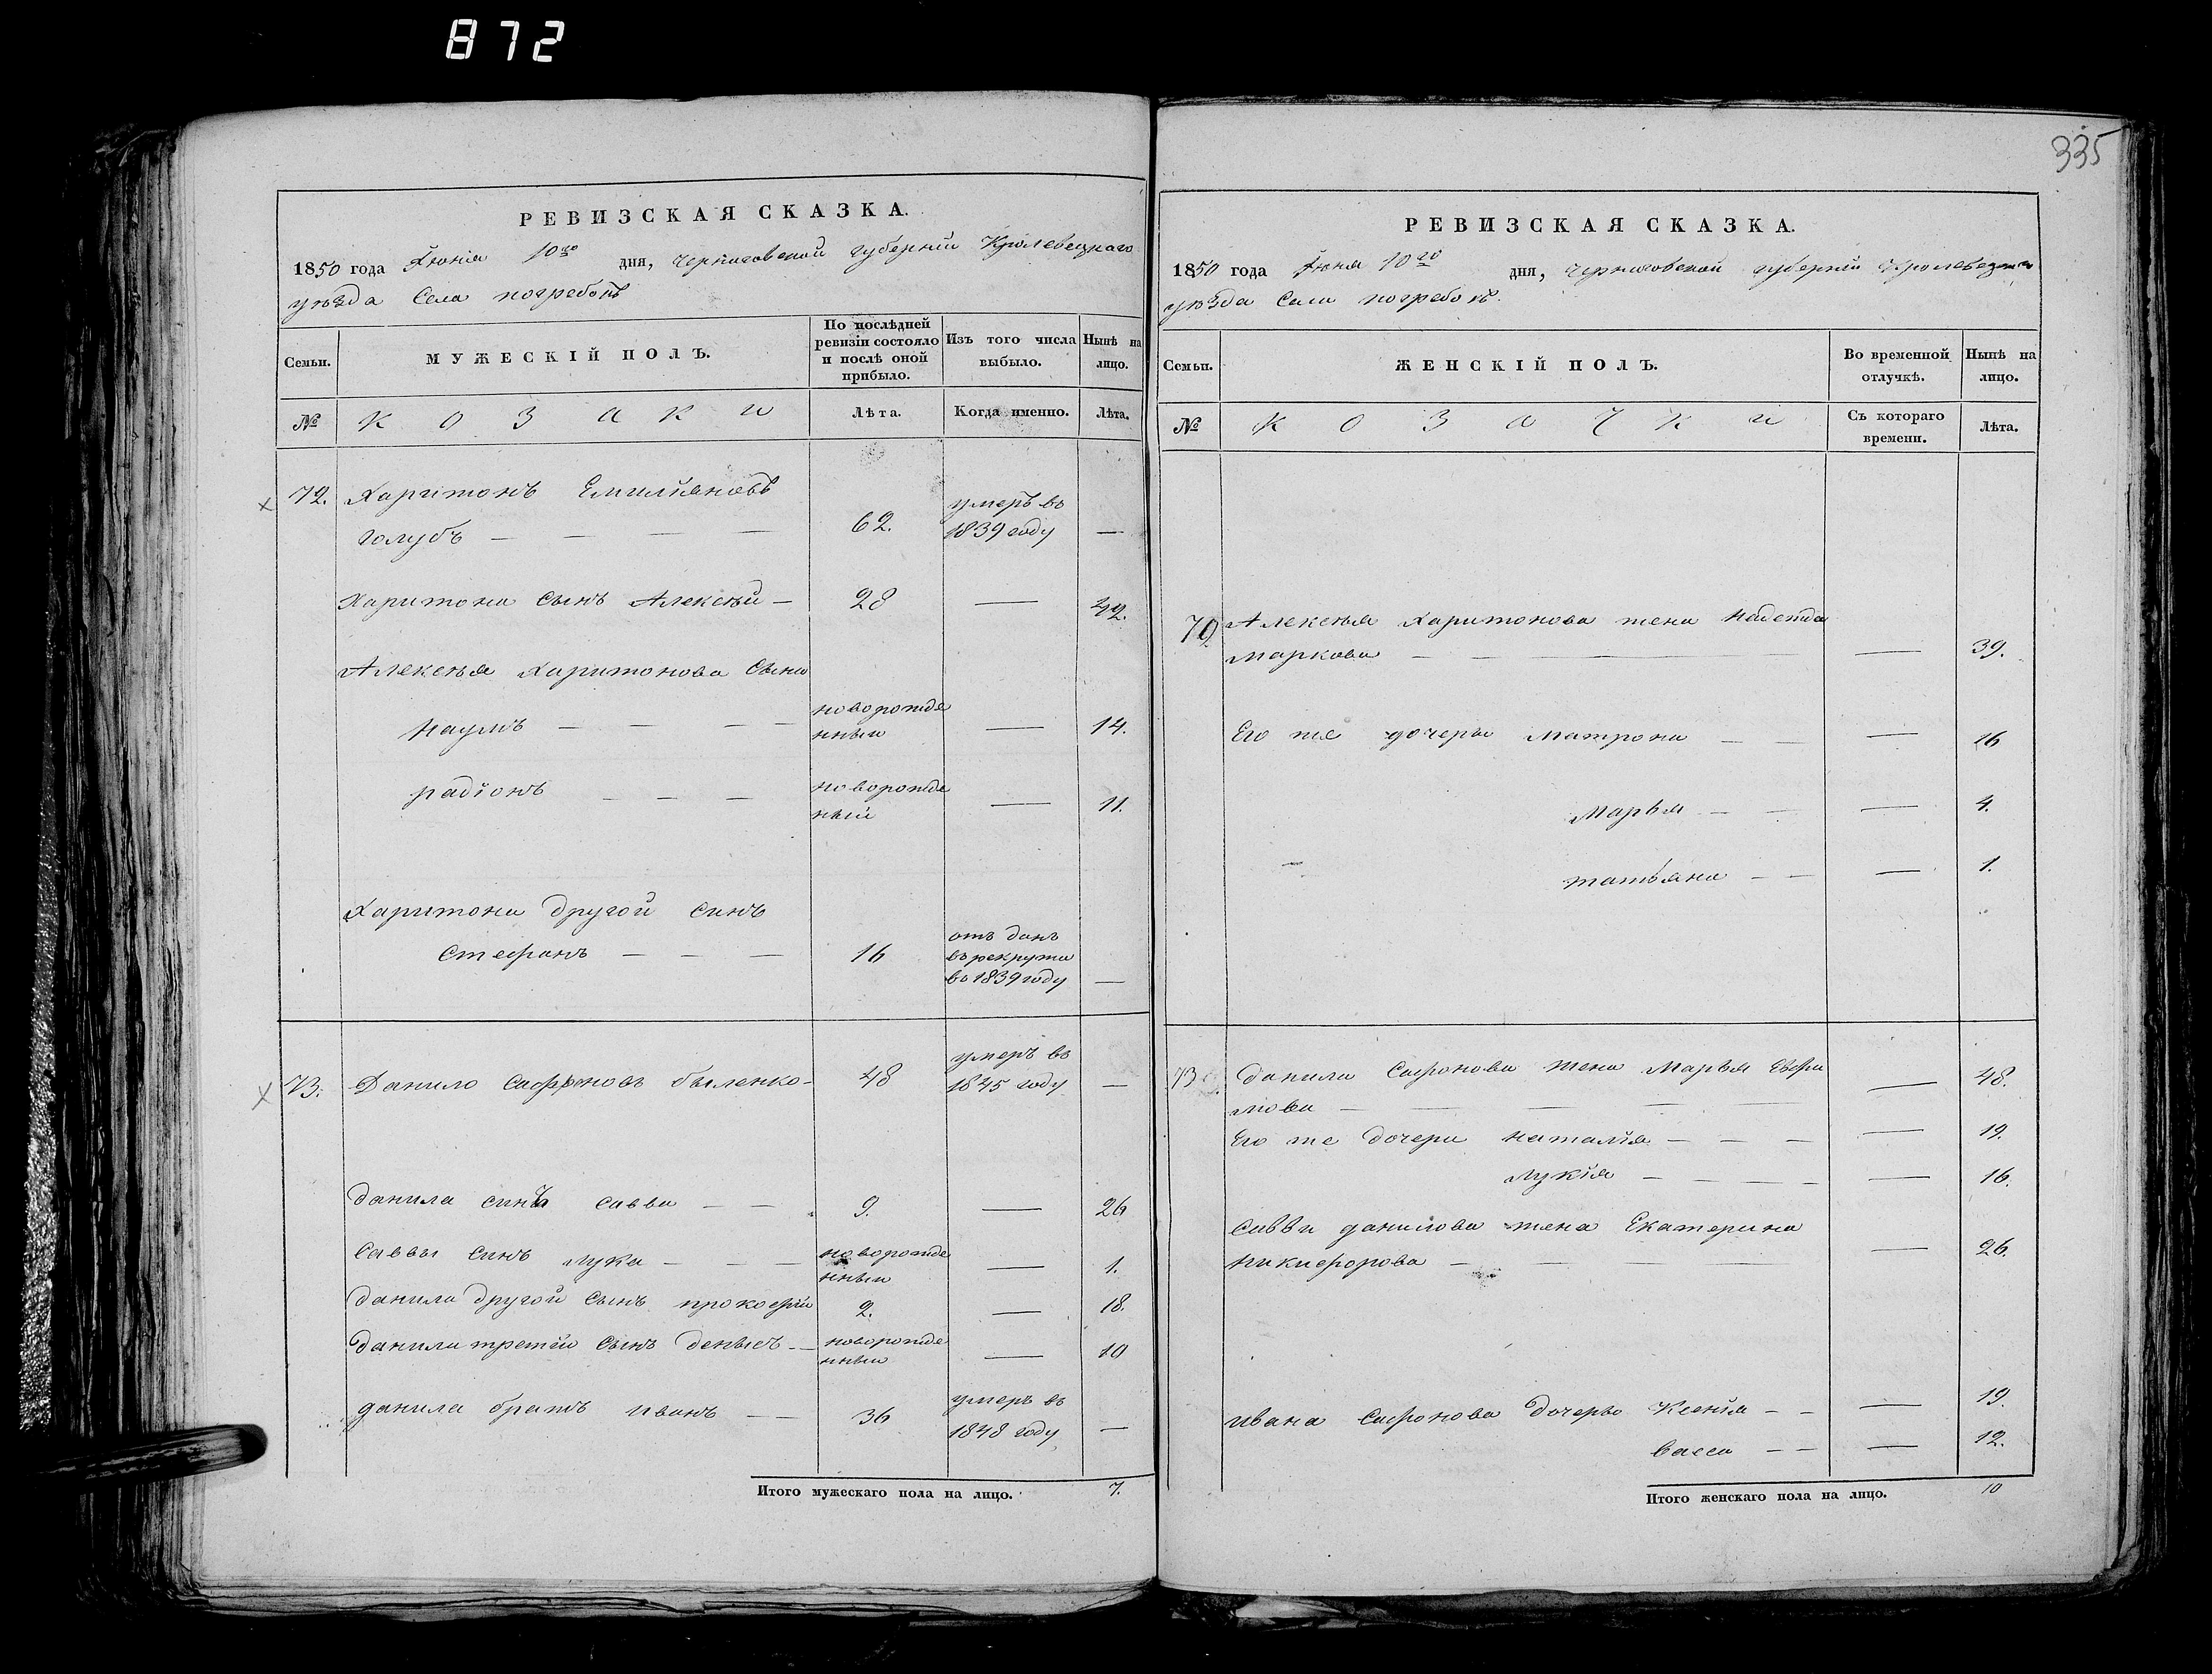 872
335
РЕВИЗСКАЯ СКАЗКА.
1850 года Июнія 10го дня, Черниговской губерніи Кролевецкаго
уѣзда Села погребокъ
Семьи.
МУЖЕСКІЙ ПОЛЪ.
По послѣдней ревизіи состояло и послѣ оной прибыло.
Изъ того числа выбыло.
Нынѣ на лицо.
№
козаки
Лѣта.
Когда именно.
Лѣта.
72. Харитонъ Емилияновъ умеръ въ
голубъ — — — — 62. 1839 году —
Харитона сынъ Алексѣй — 28 — 42.
Алексѣя Харитонова сыни
наумъ — — — — новорожде нный — 14.
радіонъ — — — новорожде ный — 11.
Харитона другой синъ
стефанъ — — — 16 отъ данъ въ рекрути во 1839 году —
73. Данило Сафроновъ быленко — 48 умеръ въ 1845 году —
данила синъ савва — — 9. — 26
саввы синъ лука — — — новорожде нный — 1.
данила другой сынъ прокофiи 2. — 18.
данила третiи сынъ денысъ — новорожде нный — 10
данила братъ иванъ — — 36 умеръ въ 1848 году —
Итого мужескаго пола на лицо. 7.
РЕВИЗСКАЯ СКАЗКА.
1850 года Июня 10го дня, Черниговской губерніи Кролевецкаго
уѣзда Села погребокъ.
Семьи.
ЖЕНСКІЙ ПОЛЪ.
Во временной отлучкѣ.
Нынѣ на лицо.
№
козачки
Съ котораго времени.
Лѣта.
72 Алексѣя Харитонова жена надежда
маркова — — — 39.
Его же дочеры матрона — — — 16
марья — — — 4.
татьяна — — — 1.
73. данила Сафонова жена Марья Ефи
мова — — — — — — 48.
Его же дочери наталія — — — — 19.
лукія — — — — — 16.
савви данилова жена Екатерина
никифорова — — — — — 26.
ивана Сафонова дочерьо Ксенія — — — 19.
васса — — — 12.
Итого женскаго пола на лицо. 10